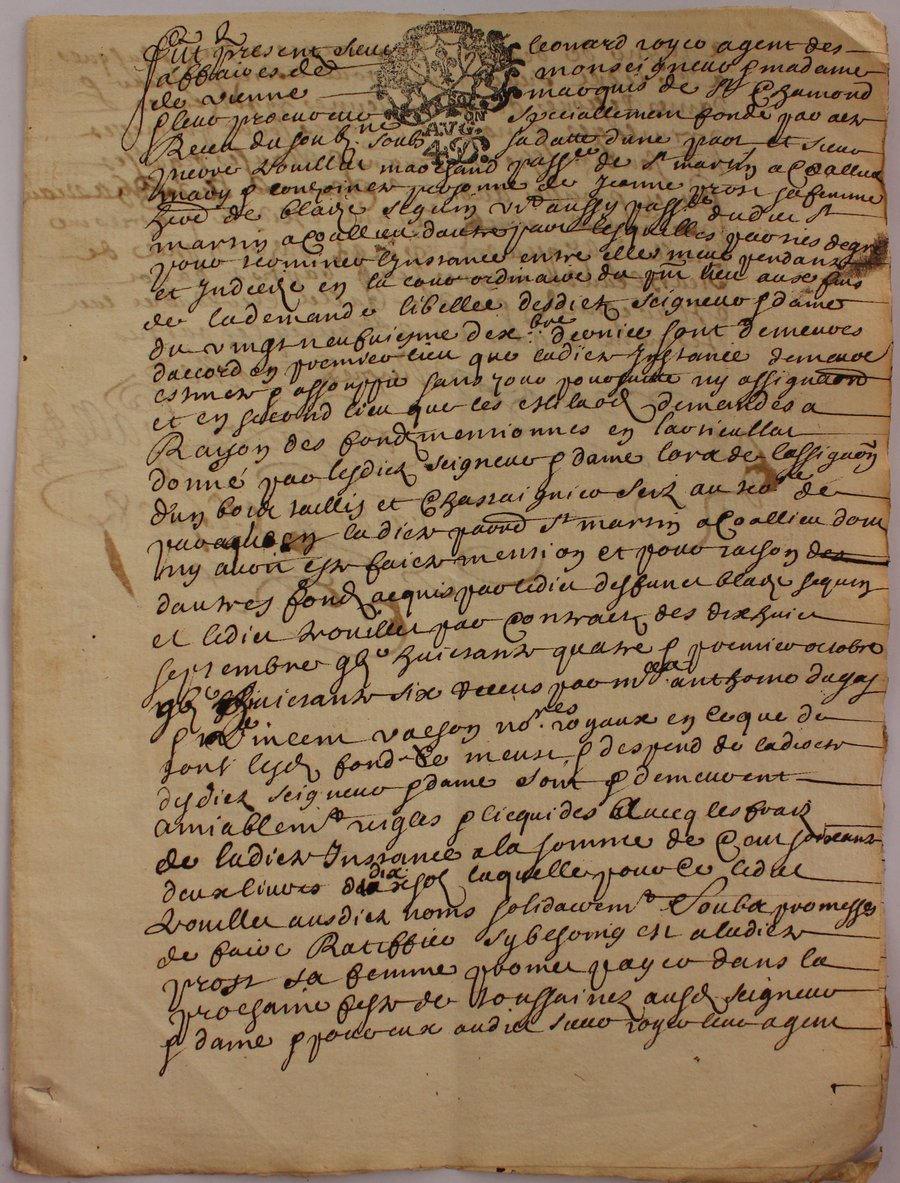 Fut present sieur leonard royer agent des
affaires de monseigneur & madame
de vienne marquis de St Chamond
& leur procureur speciallement fondé par acte
Receu du soubz.né soubz sa datte d'une part et sieur
pierre vouillat marchand pass.e de St martin acoallieu
mary & conjoincte personne de Jeanne prost sa femme
de blaize seguin aussy pass.e dudict St
martin acoallieu dautre part lesquelles parties de gre
pour terminer linstance entre elles meue pendante
et Indecize en la cour ordinaire du lieu aux fins
de la demande libellee desdictz seigneur & dame
du vingtneufuiesme dex.bre dernier sont demeures
daccord en premier lieu que ladicte Instance demeure
esteincte & assouppie sans pour poursuitte ny assignaon
et en second lieu que les demandes a
Raison des fondz mentionnes en larticullat
donné par lesdictz seigneur & dame lors de lassignaon
d'un bois taillis et Chassaignier scis au terr.re de
en ladicte parr. St martin acoallieu dont
ny auoit este faicte mention et pour raison des
dautres fondz acquis par ledict deffunct blaize seguin
et ledict vouillat par Contractz des dixhuict
septembre huictante quatre & premier octobre
huictante six receus par m.e anthome dugas
& Vincent vacson no.res royaux en ce que de
sont lesd. fondz de meust & despend de la directe
desdictz seigneur & dame sont & demeurent
amiablem.t regles & licquides Auecq les fraiz
de ladicte Instance a la somme de Cent soixante
deux liures dix solz laquelle pour ce ledict
vouillat ausdictz noms solidairem.t Soubz promesses
de faire Ratiffier sy besoing est a ladicte
prost sa femme promet payer dans la
prochaine feste de toussainctz ausd. seigneur
& dame & pour eux audict sieur royer leur agent